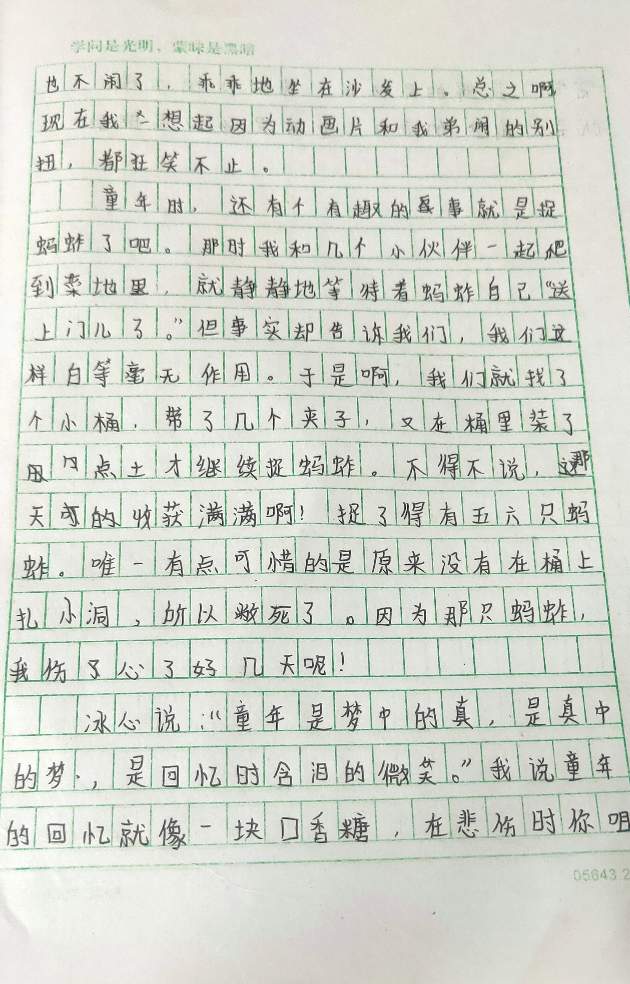 学问是光明，蒙昧是黑暗
也不闹了，乖乖地坐在沙发上。总之啊
现在我一想起因为动画片和我弟闹的别
扭，都狂笑不止。
童年时，还有个有趣的事就是捉
蚂蚱了吧。那时我和几个小伙伴一起爬
到菜地里，就静静地等待着蚂蚱自己“送
上门儿了。”但事实却告诉我们，我们这
样白等毫无作用。于是啊，我们就找了
个小桶，带了几个夹子，又在桶里装了
几点土才继续捉蚂蚱。不得不说，那
天的收获满满啊！捉了得有五六只蚂
蚱。唯一有点可惜的是原来没有在桶上
扎小洞，所以死了。因为那只蚂蚱，
我伤了心了好几天呢！
冰心说：“童年是梦中的真，是真中
的梦，是回忆时含泪的微笑。”我说童年
的回忆就像一块口香糖，在悲伤时你咀
05643.2